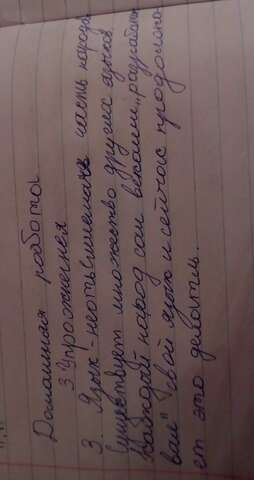 Домашняя работа.
3 Упражнения
3. Язык - неотъемлемая часть народа
Существует множество других языков.
Каждый народ сам веками „разрабаты-
вал" свой язык и сейчас продолжа-
ет это делать.